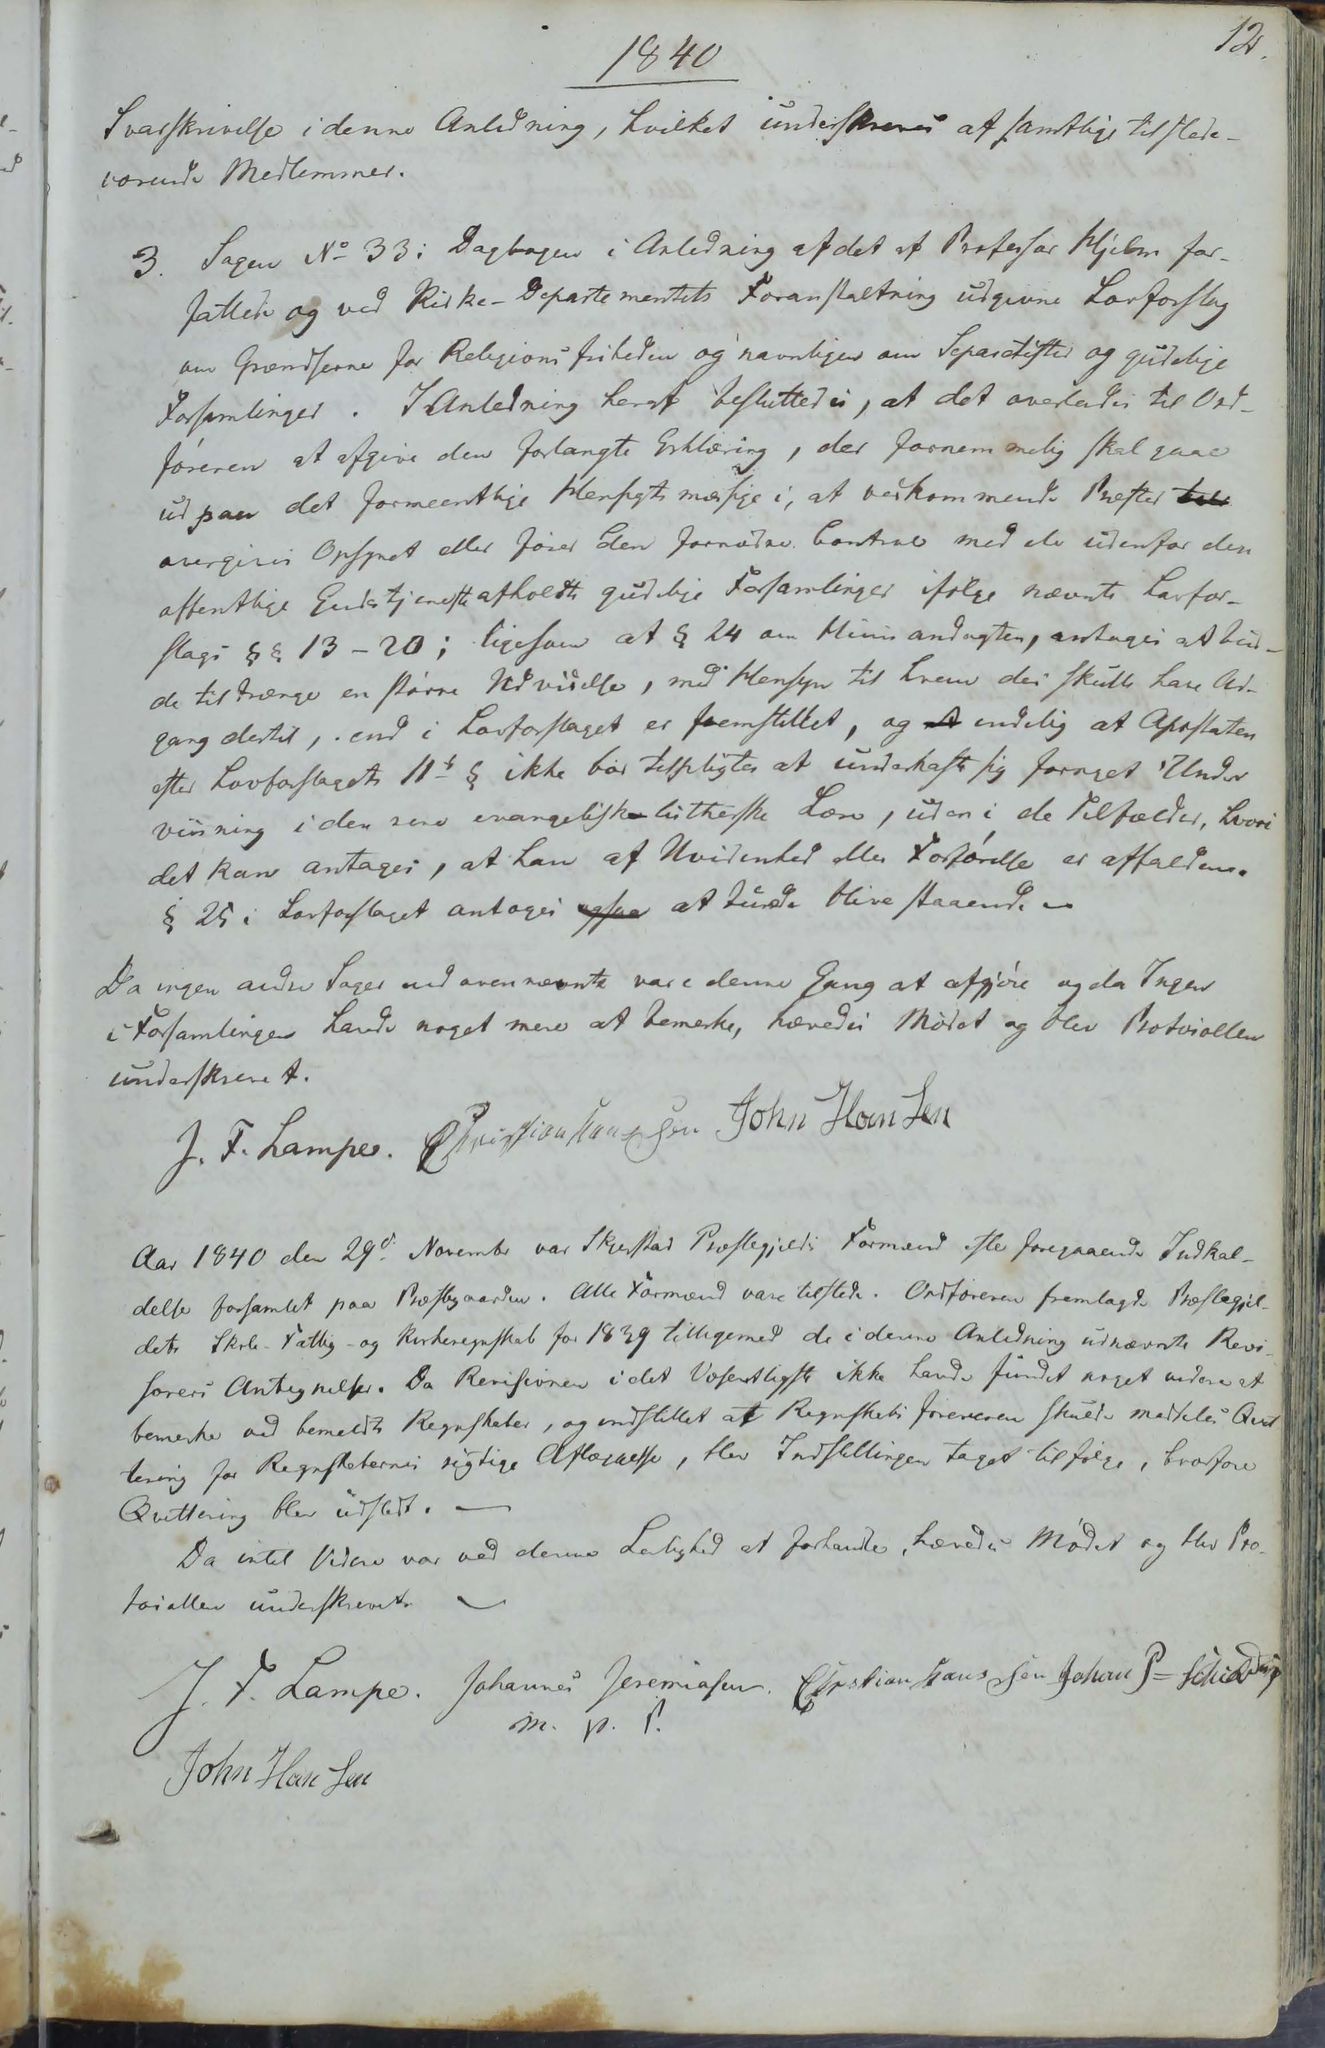 12.
1840
Svarskrivelse i denne Anledning, hvilket underskreves af samtlige tilstede-
værende Medlemmer.
3. Sagen No 33 i Dagbogen i Anledning af det af Professor Hjelm for-
fattede og ved Kirke-Departementets Foranstaltning udgivne Lovforslag
om Grændserne for Religionsfriheden og navnligen om Separatister og gudelige
Forsamlinger. I Anledning heraf besluttedes, at det overlades til Ord-
føreren at afgive den forlangte Erklæring, der fornemmelig skal gaae
ud paa det formeentlige Hensigtsmæssige i, at vedkommende Præster
overgives Opsynet eller fører den fornødne Control med de udenfor den
offentlige Gudstjeneste afholdte gudelige Forsamlinger ifølge nævnte Lovfor-
slags §§ 13-20; ligesom at § 24 om Huusandagten, antages at bur-
de tiltrænge en større Udvidelse, med Hensyn til hvem der skulle have Ad-
gang dertil, end i Lovforslaget er fremstillet, og endelig at Apostaten
efter Lovforslagets 11te § ikke bør tilpligtes at underkaste sig fornyet Under
viisning i den rene evangelisk-lutherske Lære, uden i de Tilfælder, hvori
det kan antages, at han af Uvidenhed eller Forførelse er affalden.
§ 25 i Lovforslaget antages ogsaa at burde blive staaende
Da ingen andre Sager end ovennævnte vare denne Gang at afgjøre og da Ingen
i Forsamlingen havde noget mere at bemerke, hævedes Mødet og blev Protocollen
underskrevet.
J. F. Lampe. Christian Hanssen John Hansen
Aar 1840 den 29d November var Skjerstad Præstegjelds Formænd efter foregaaende Indkal-
delse forsamlet paa Præstegaarden. Alle Formænd vare tilstede. Ordføreren fremlagde Præstegjel-
dets Skole- Fattig- og Kirkeregnskab for 1839 tilligemed de i denne Anledning udnævnte Revi-
sorers Antegnelser. Da Revisionen i det Væsentligste ikke havde fundet noget videre at
bemerke ved bemeldte Regnskaber, og indstillet at Regnskabsføreren skulde meddeles Qvit
tering for Regnskabernes rigtige Aflæggelse, blev Indstillingen taget tilfølge, hvorfore
Qvittering blev udstedt.
Da intet Videre var ved denne Leilighed at forhandle, hævedes Mødet og blev Pro-
tocollen underskrevet
J. F. Lampe. Johannes Jeremiasen. Christian Hanssen Johan P=
m. p. P.
John Hansen